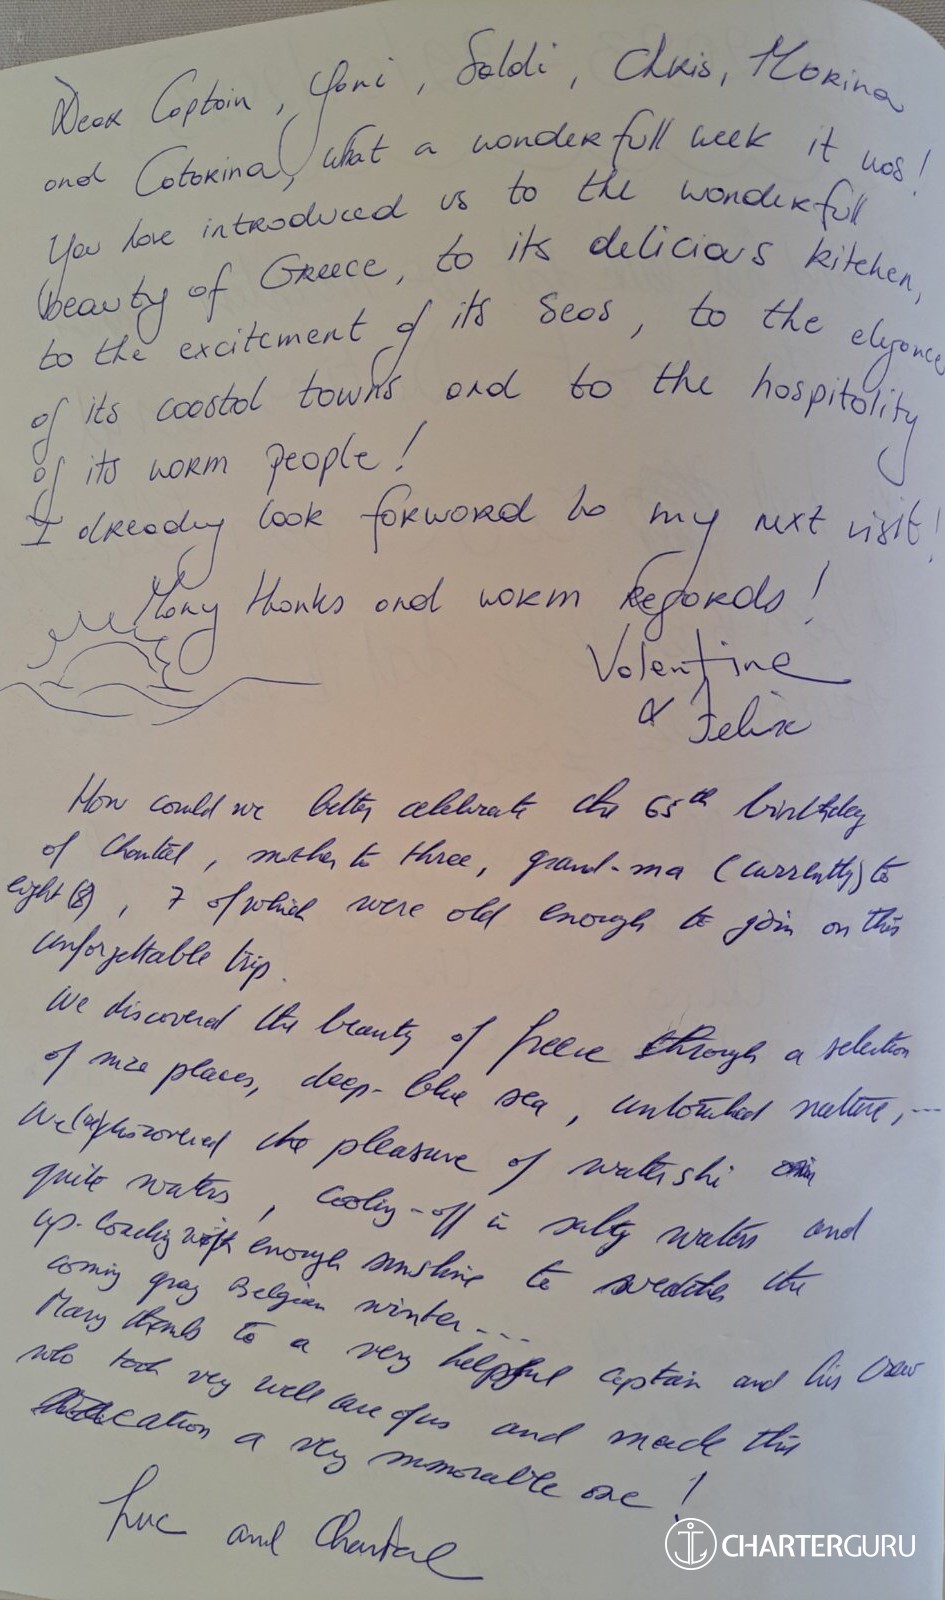 Dear Captain, Yoni, Saldi, Chris, Morina
and Catarina, what a wonderfull week it was!
You have introduced us to the wonderfull
beauty of Greece, to its delicious kitchen,
to the excitement of its seas, to the elegance
of its coastal towns and to the hospitality
of its warm people!
I already look forward to my next visit!
Many thanks and warm regards!
Valentine
& Felix
How could we better celebrate the 65th birthday
of Chantal, mother to three, grand-ma (currently) to
eight (8), 7 of which were old enough to join on this
unforgettable trip.
We discovered the beauty of Greece through a selection
of nice places, deep-blue sea, untouched nature,...
We (re)discovered the pleasure of waterski in
quite waters, cooling-off in salty waters and
up-loading with enough sunshine to the
coming gray Belgian winter...
Many thanks to a very helpful captain and his crew
who took very well care of us and made this
vacation a very memorable one!
Luc and Chantal
CHARTERGURU